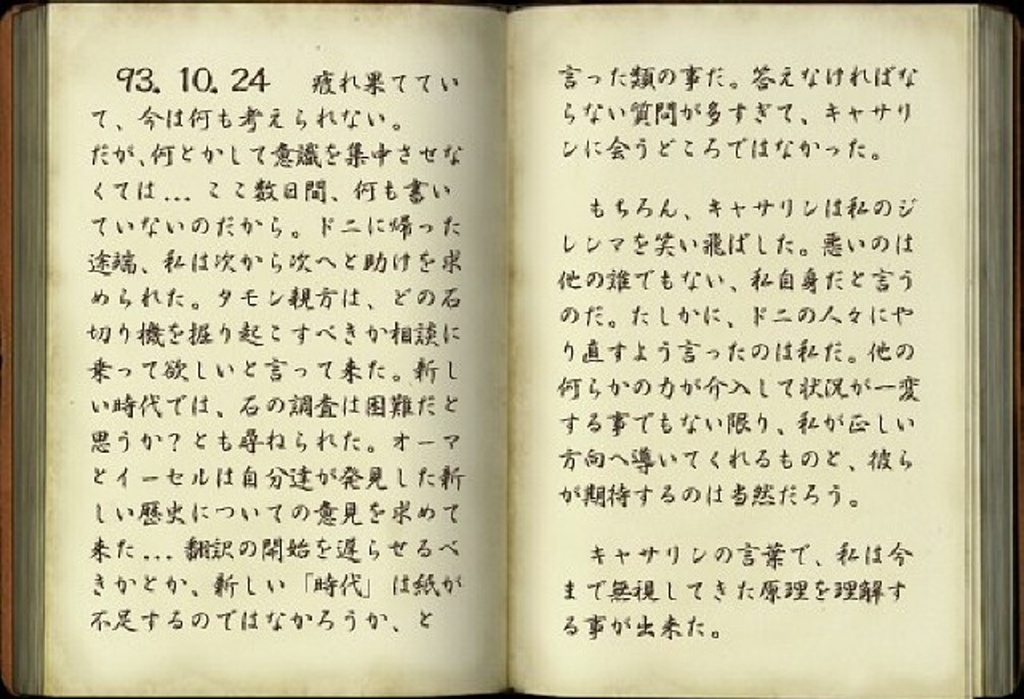 93. 10. 24　疲れ果ててい
て、今は何も考えられない。
だが、何とかして意識を集中させな
くては... ここ数日間、何も書い
ていないのだから。ドニに帰った
途端、私は次から次へと助けを求
められた。タモン親方は、どの石
切り機を掘り起こすべきか相談に
乗って欲しいと言って来た。新し
い時代では、石の調査は困難だと
思うか？とも尋ねられた。オーマ
とイーセルは自分達が発見した新
しい歴史についての意見を求めて
来た... 翻訳の開始を遅らせるべ
きかとか、新しい「時代」は紙が
不足するのではなかろうか、と
言った類の事だ。答えなければな
らない質問が多すぎて、キャサリ
ンに会うどころではなかった。
もちろん、キャサリンは私のジ
レンマを笑い飛ばした。悪いのは
他の誰でもない、私自身だと言う
のだ。たしかに、ドニの人々にや
り直すよう言ったのは私だ。他の
何らかの力が介入して状況が一変
する事でもない限り、私が正しい
方向へ導いてくれるものと、彼ら
が期待するのは当然だろう。
キャサリンの言葉で、私は今
まで無視してきた原理を理解す
る事が出来た。